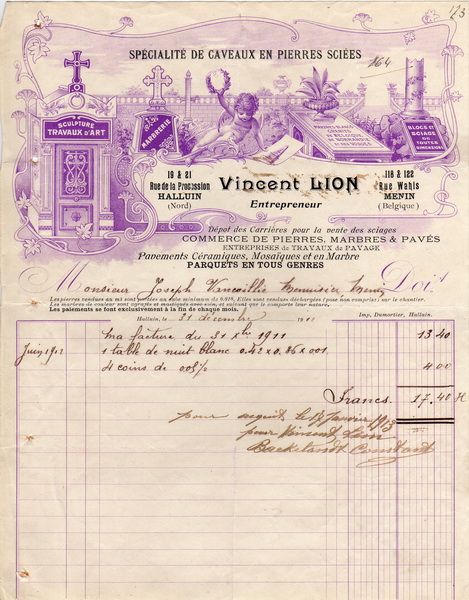 173
164
SPÉCIALITÉ DE CAVEAUX EN PIERRES SCIÉES
SCULPTURE
TRAVAUX D'ART
MARBRERIE
MARBRES BLANCS
GRANITS
DE BELGIQUE
DE NORMANDIE
ET DES VOSGES
BLOCS ET
SCIAGE
DE
TOUTES
DIMENSIONS
19 & 21
Rue de la Procession
HALLUIN
(Nord)
Vincent LION
Entrepreneur
118 & 122
Rue Wahis
MENIN
(Belgique)
Dépôt des Carrières pour la vente des sciages
COMMERCE DE PIERRES, MARBRES & PAVÉS
ENTREPRISES DE TRAVAUX DE PAVAGE
Pavements Céramiques, Mosaïques et en Marbre
PARQUETS EN TOUS GENRES
Monsieur Joseph Menuisier Menin Doit
Les pierres vendues au m3 sont portées au cube minimum de 0.010. Elles sont vendues déchargées (pose non comprise) sur le chantier.
Les marbres de couleur sont agréés et mastiqués avec soin, et suivant que le comporte leur nature.
Les paiements se font exclusivement à la fin de chaque mois.
Halluin, le 31 décembre 191
Imp. Dumortier, Halluin.
ma facture du 31 xbre 1911 13 40
Juin 1912 1 table de nuit blanc 0.42 x 0.36 x 001
4 coins de 4 00
Francs 17.40
pour acquit le 17 janvier 1913
pour Vincent Lion
Backelandt Constant